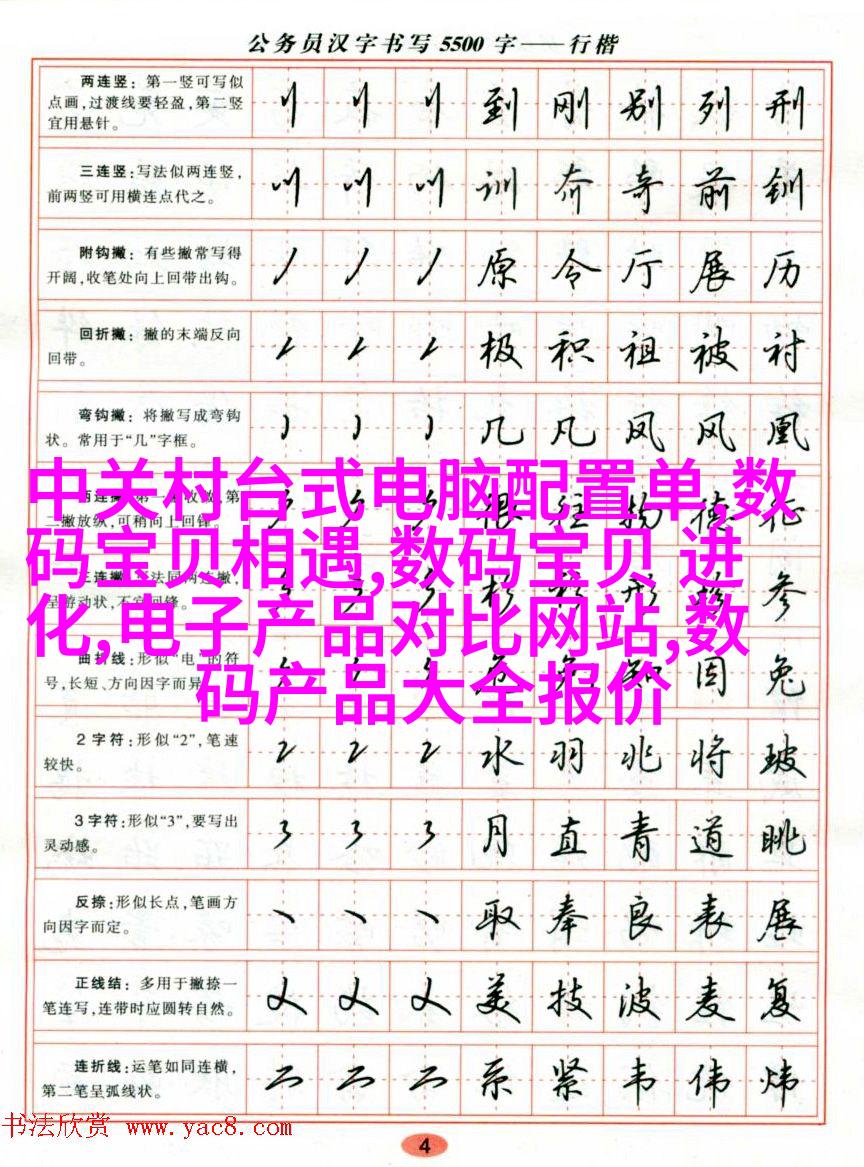 公务员汉字书写5500字——行楷
两连竖：第一竖可写似
点画,过渡线要轻盈,第二竖
宜用悬针。
到 刚 别 列 刑
三连竖:写法似两连竖,
前两竖可用横连点代之。
训 夼 奇 前 钏
附钩撇：有些撇常写得
开阔,收笔处向上回带出钩。
原 令 厅 展 历
回折撇：撇的末端反向
回带。
极 积 祖 被 衬
弯钩撇：将撇写成弯钩
状。常用于“几”字框。
几 凡 凤 风 凰
中关村台式电脑配置单,数
码宝贝相遇,数码宝贝 进
化,电子产品对比网站,数
码产品大全报价
二撇放纵,可稍向上回锋。
很 往 物 德 征
参
曲折线：形似“电”的符
号,长短、方向因字而异。
因 兔
2字符：形似“2”,笔速
较快。
水 羽 兆 将 玻
3字符:形似“3”,要写出
灵动感。
月 直 青 道 眺
反捺:形似长点,笔画方
向因字而定。
取 奉 良 表 展
正线结：多用于撇捺一
笔连写,连带时应圆转自然。
美 技 波 麦 复
连折线:运笔如同连横,
第二笔呈弧线状。
系 紧 韦 伟 炜
书法欣赏 www.yac8.com
4